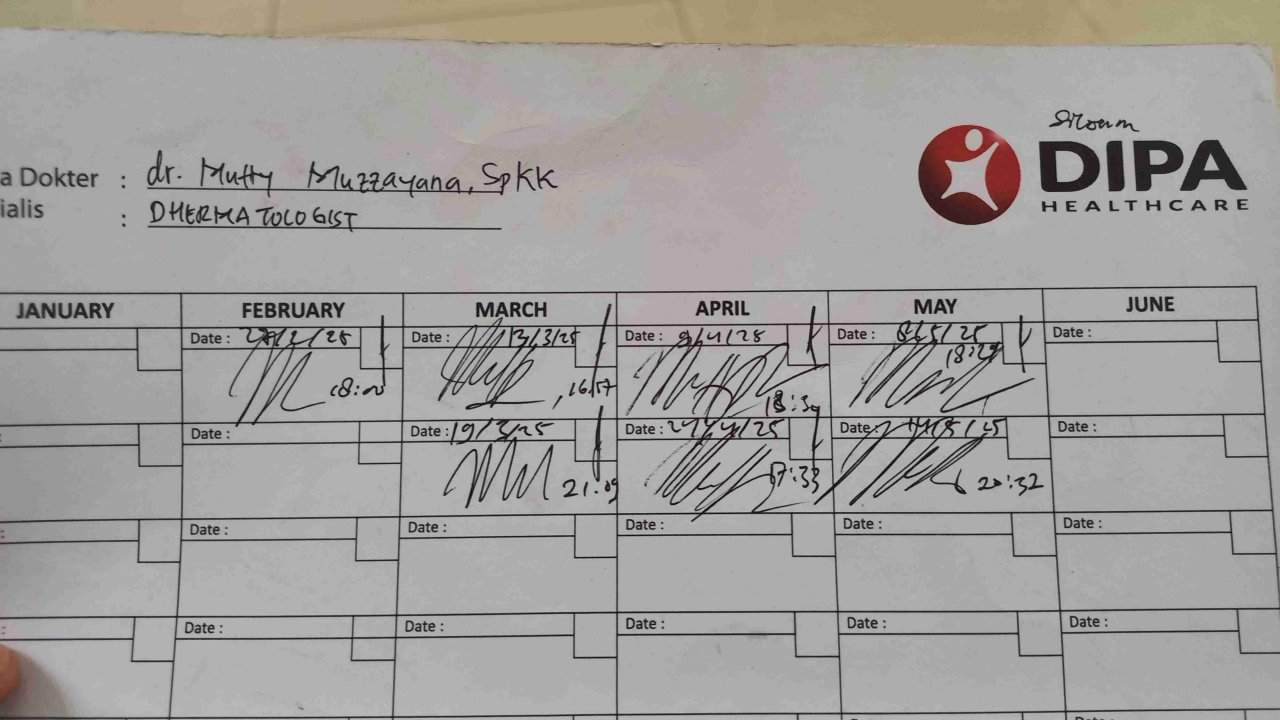 a Dokter : dr. Mutty Muzzayana, SpKK
ialis : DHERMATOLOGIST
DIPA
HEALTHCARE
JANUARY FEBRUARY MARCH APRIL MAY JUNE
Date : /2/25 Date : 13/3/25 Date : 9/4/25 Date : 8/5/25 Date :
18:00 16:57 18:29
Date : Date : 19/3/25 Date : /4/25 Date : 14/5/25 Date :
21:09 17:33 20:32
Date : Date : Date : Date : Date :
Date : Date : Date : Date : Date :
Date :